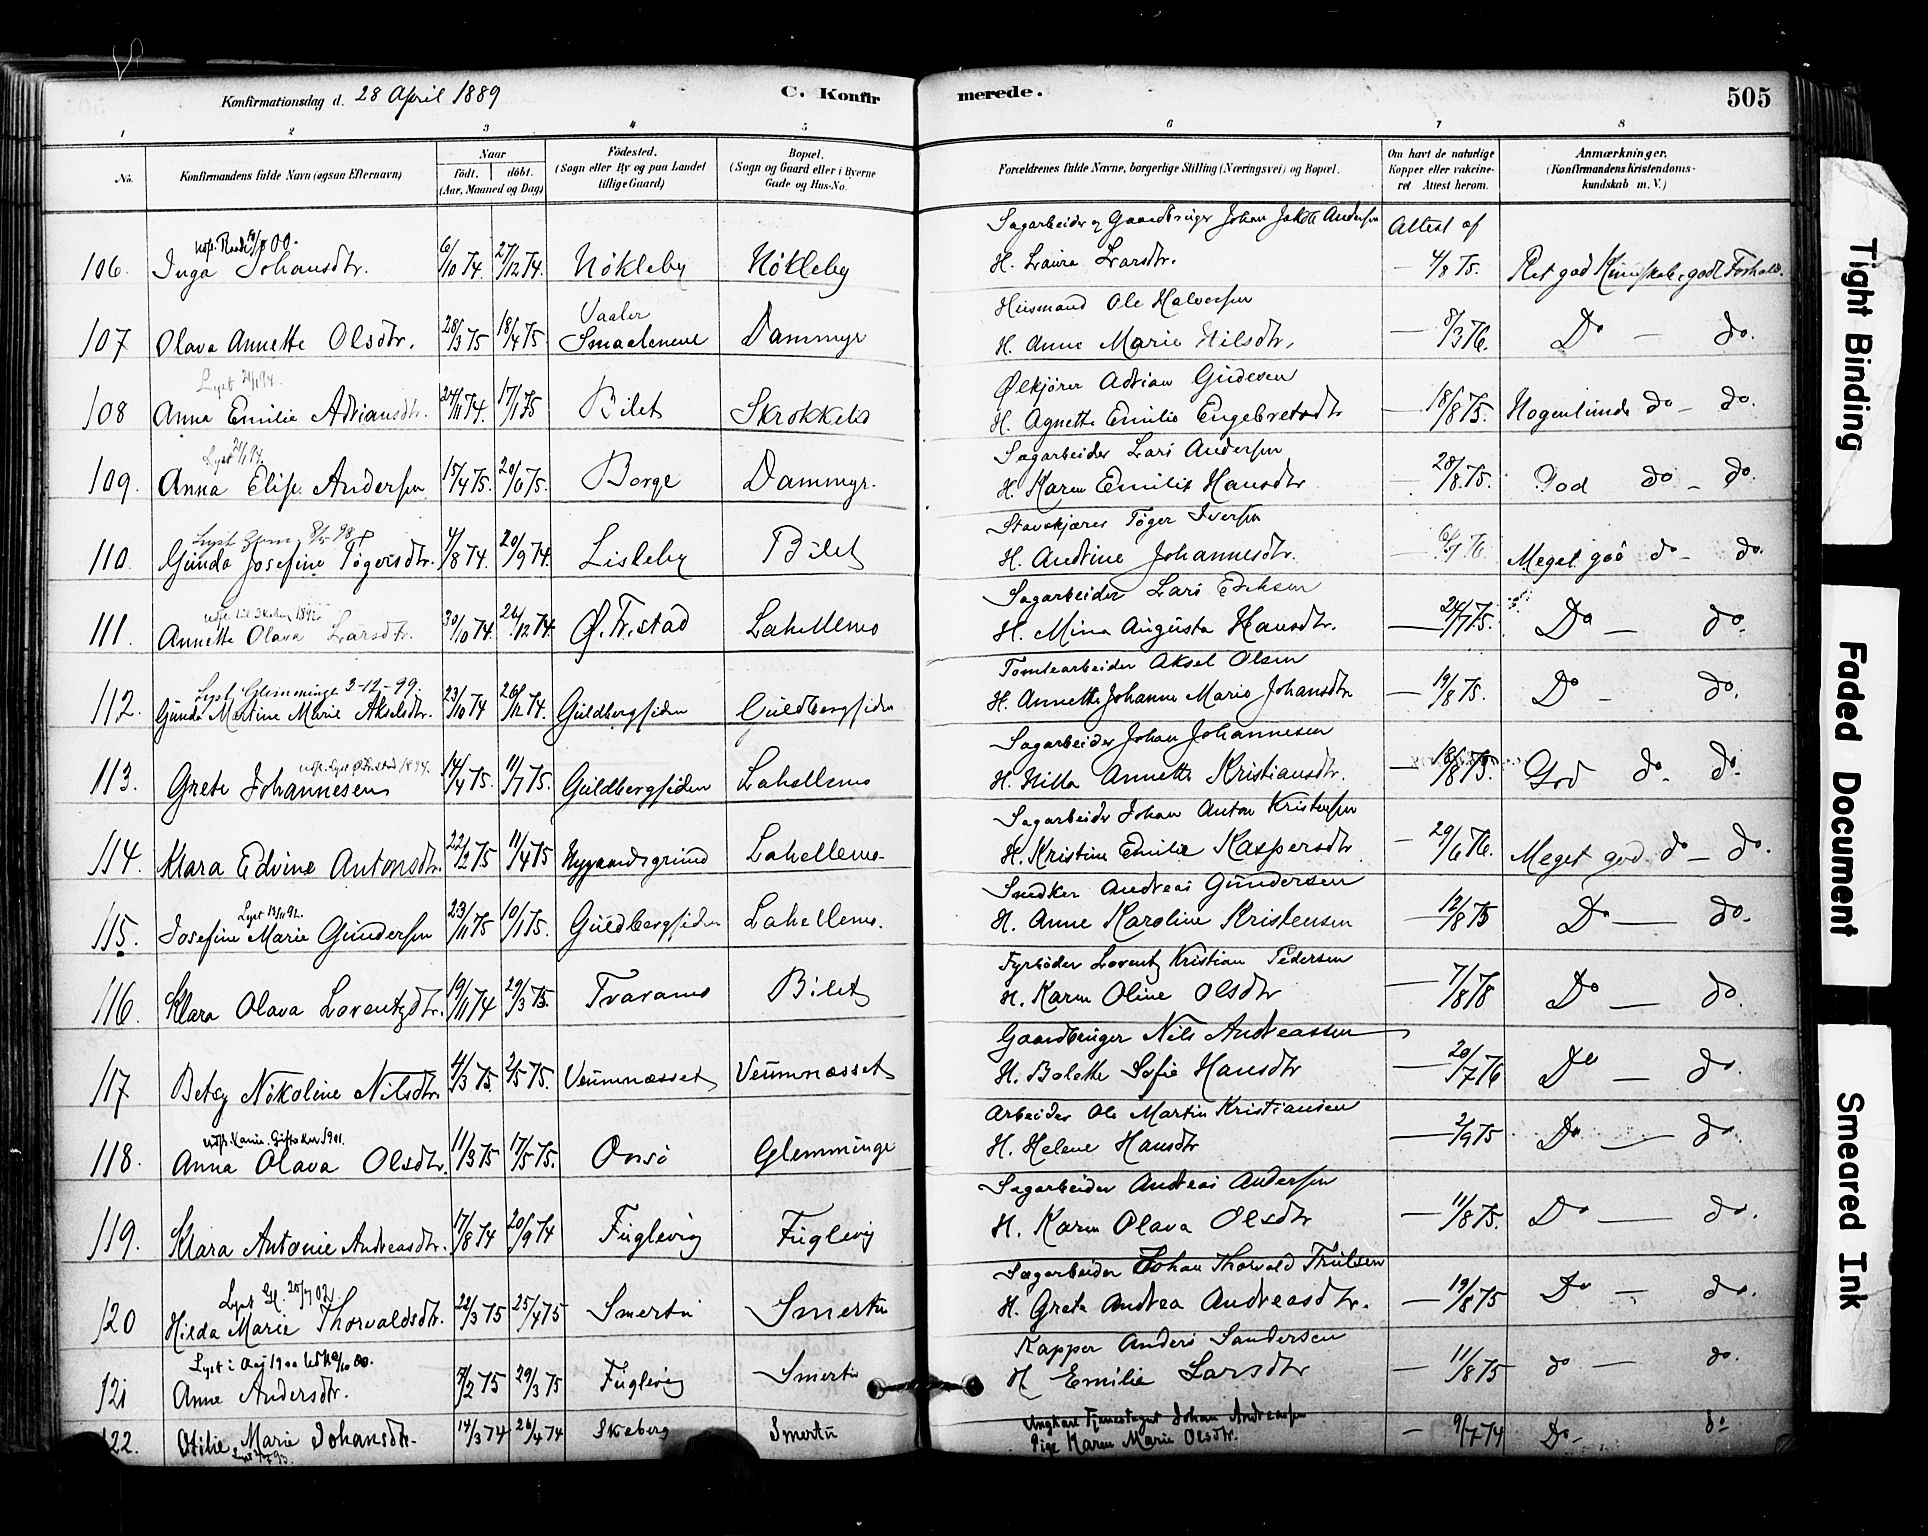 Konfirmationsdag d. 28 April 1889 C. Konfirmerede. 505
1 2 3 4 5 6 7 8
No. Konfirmandens fulde Navn (ogsaa Efternavn) Naar födt. döbt. (Aar, Maaned og Dag) Födested. (Sogn eller By og paa Landet tillige Gaard) Bopæl. (Sogn og Gaard eller i Byerne Gade og Hus-No. Forældrenes fulde Navne, borgerlige Stilling (Næringsvei) og Bopæl. Om havt de naturlige Kopper eller vakcineret Attest herom. Anmærkninger. (Konfirmandens Kristendomskundskab m. V.)
Sagarbeider og Gaardbruger Johan Jakob Andersen Attest af
106. Inga Johansdtr. 6/10 74. 27/12 74. Nökleby Nökleby H. Laura Larsdtr. — 4/8 75. Ret god Kundskab, godt Forhold.
Vaaler Husmand Ole Halvorsen
107 Olava Annette Olsdtr. 28/3 75 18/4 75. Smaalenene Dammyr H. Anne Marie Nilsdtr. — 8/3 76. Do — do.
Lyst Ølkjører Adrian Gudesen
108 Anna Emilie Adriansdtr. 24/11 74. 17/1 75 Bilet Skrokkelo H. Agnette Emilie Engebretsdtr — 18/8 75. do — do.
Lyst Sagarbeider Lars Andersen
109. Anna Elise Andersen 15/4 75. 20/6 75. Borge Dammyr. H. Karen Emilie Hansdtr — 28/8 75. God do — do.
Lyst Töger Iversen
110. Gunda Josefine Tögersdtr. 4/8 74. 20/9 74. Lisleby Bilet H. Andrine Johannesdtr. Meget god do — do.
Sagarbeider Lars Eriksen
111. Annette Olava Larsdtr. 30/10 74. 26/12 74. Ø. Fr.stad Lahellemo H. Mina Augusta Hansdtr. — 24/7 75. Do — do.
Lyst Glemminge 3-12-99. Tomtearbeider Aksel Olsen
112. Gunda Martine Marie Akselsdtr. 23/10 74 26/12 74. Guldbergsiden Guldbergsiden H. Annette Johanne Marie Johansdtr. — 19/8 75. Do — do.
Sagarbeider Johan Johannesen
113. Grete Johannesen 14/4 75. 11/7 75. Guldbergsiden Lahellemo H. Hilla Annette Kristiansdtr. — 18/8 75. God do. do.
Sagarbeider Johan Anton Kristensen
114. Klara Edvine Antonsdtr. 22/2 75 11/4 75 Nygaardsgrund Lahellemo. H. Kristine Emilie Kaspersdtr — 29/6 76. Meget god do — do.
Lyst Snedker Andreas Gundersen
115. Josefine Marie Gundersen 23/11 75 10/1 75. Guldbergsiden Lahellemo. H. Anne Karoline Kristensen — 12/8 75 Do — do.
Fyrböder Lorentz Kristian Pedersen
116. Klara Olava Lorentzdtr. 19/11 74 29/3 75. Traramo Bilet H. Karen Oline Olsdtr — 7/8 78 Do — do.
Gaardbruger Nils Andreassen
117 Betsy Nikoline Nilsdtr. 4/3 75 2/5 75. Veumnæsset Veumnæsset H. Bolette Sofie Hansdtr — 20/7 76 Do — do.
Arbeider Ole Martin Kristiansen
118. Anna Olava Olsdtr. 11/3 75 17/5 75. Onsö Glemminge H. Helene Hansdtr — 2/9 75 Do — do.
Sagarbeider Andreas Andersen
119. Klara Antonie Andreasdtr. 17/8 74 20/9 74 Fuglevig Fuglevig H. Karen Olava Olsdtr — 11/8 75. Do — do.
Lyst Gl. 20/7 02. Sagarbeider Johan Thorvald Trulsen
120 Hilda Marie Thorvaldsdtr. 22/3 75 25/4 75 Smertu Smertu H. Grete Andrea Andreasdtr. — 19/8 75 Do — do.
Lyst i Aas 1900 Kapper Anders Sandersen
121 Anne Andersdtr. 7/2 75 29/3 75 Fuglevig Smertu H. Emilie Larsdtr — 11/8 75 do — do.
Ungkarl Tjenestegut Johan Andreassen
122. Otilie Marie Johansdtr. 14/3 74 26/4 74 Skeberg Smertu Pige Karen Marie Olsdtr. — 9/7 74 Do — do
Lyst
Tight Binding
Faded Document
Smeared Ink